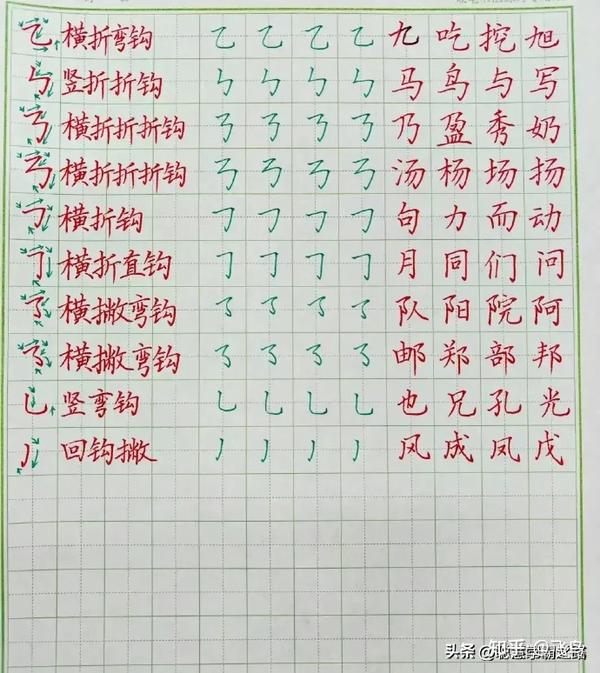 横折弯钩 乙 乙 乙 乙 九 吃 挖 旭
竖折折钩 ㄣ ㄣ ㄣ ㄣ 马 鸟 与 写
横折折折钩 𠄎 𠄎 𠄎 𠄎 乃 盈 秀 奶
横折折折钩 𠄎 𠄎 𠄎 𠄎 汤 杨 场 扬
横折钩 𠃌 𠃌 𠃌 𠃌 句 力 而 动
横折直钩 𠃌 𠃌 𠃌 𠃌 月 同 们 问
横撇弯钩 ㇌ ㇌ ㇌ ㇌ 队 阳 院 阿
横撇弯钩 ㇌ ㇌ ㇌ ㇌ 邮 郑 部 邦
竖弯钩 乚 乚 乚 乚 也 兄 孔 光
回钩撇 丿 丿 丿 丿 风 成 凤 戊
知乎
头条